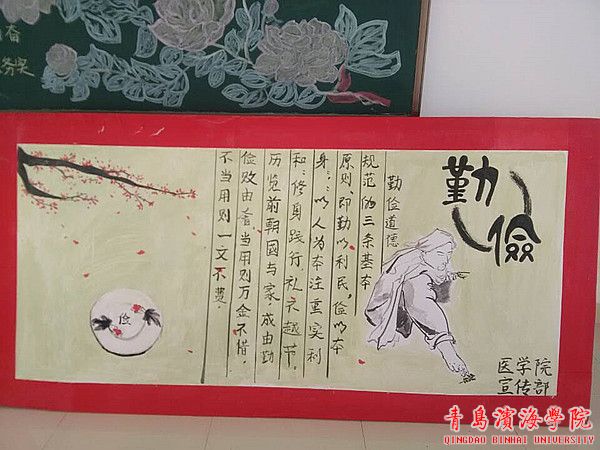 勤儉
勤俭道德
规范的三条基本
原则,即勤以利民,俭以本
身;:以人为本注重实利
和:修身践行,礼不越节,
历览前朝国与家,成由勤
俭败由奢当用则万金不惜,
不当用则一文不费.
俭
医学院
宣传部
青島濱海學院
QINGDAO BINHAI UNIVERSITY